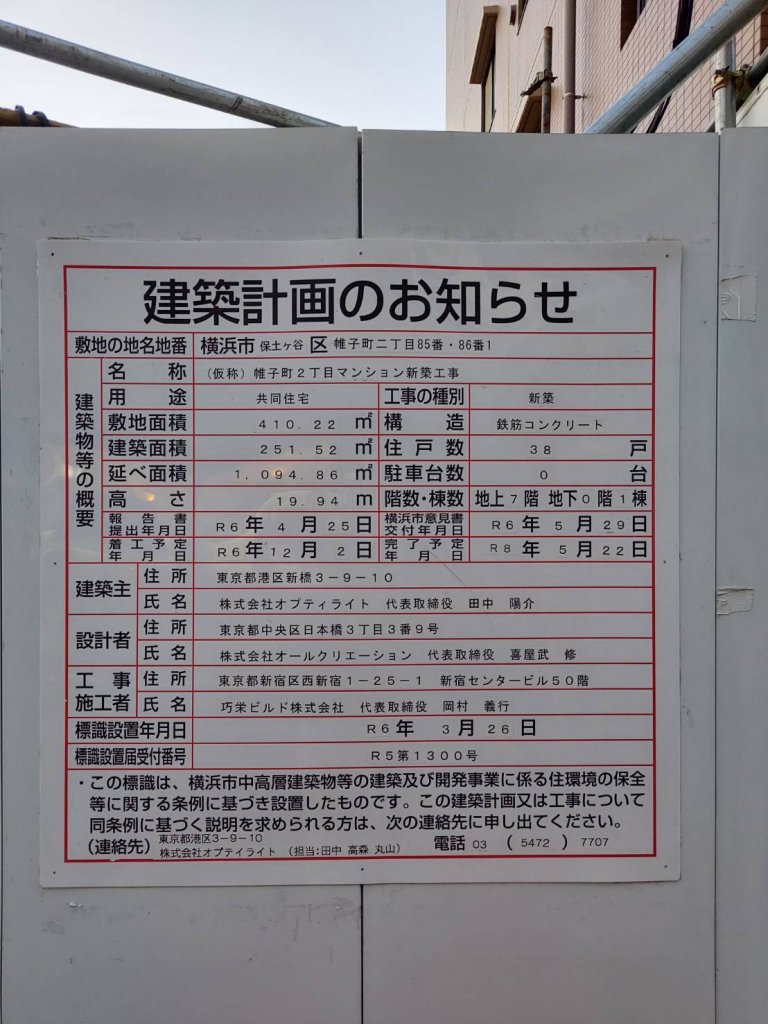 建築計画のお知らせ
敷地の地名地番 横浜市 保土ヶ谷 区 帷子町二丁目85番・86番1
建築物等の概要
名称 （仮称）帷子町2丁目マンション新築工事
用途 共同住宅 工事の種別 新築
敷地面積 410.22 ㎡ 構造 鉄筋コンクリート
建築面積 251.52 ㎡ 住戸数 38 戸
延べ面積 1,094.86 ㎡ 駐車台数 0 台
高さ 19.94 m 階数・棟数 地上7階 地下0階1棟
報告書提出年月日 R6年 4月25日 横浜市意見書交付年月日 R6年 5月29日
着工予定年月日 R6年12月 2日 完了予定年月日 R8年 5月22日
建築主 住所 東京都港区新橋3－9－10
氏名 株式会社オプティライト 代表取締役 田中 陽介
設計者 住所 東京都中央区日本橋3丁目3番9号
氏名 株式会社オールクリエーション 代表取締役 喜屋武 修
工事施工者 住所 東京都新宿区西新宿1－25－1 新宿センタービル50階
氏名 巧栄ビルド株式会社 代表取締役 岡村 義行
標識設置年月日 R6年 3月26日
標識設置届受付番号 R5第1300号
・この標識は、横浜市中高層建築物等の建築及び開発事業に係る住環境の保全
等に関する条例に基づき設置したものです。この建築計画又は工事について
同条例に基づく説明を求められる方は、次の連絡先に申し出てください。
（連絡先） 東京都港区3－9－10
株式会社オプティライト （担当：田中 高森 丸山） 電話 03 （ 5472 ） 7707